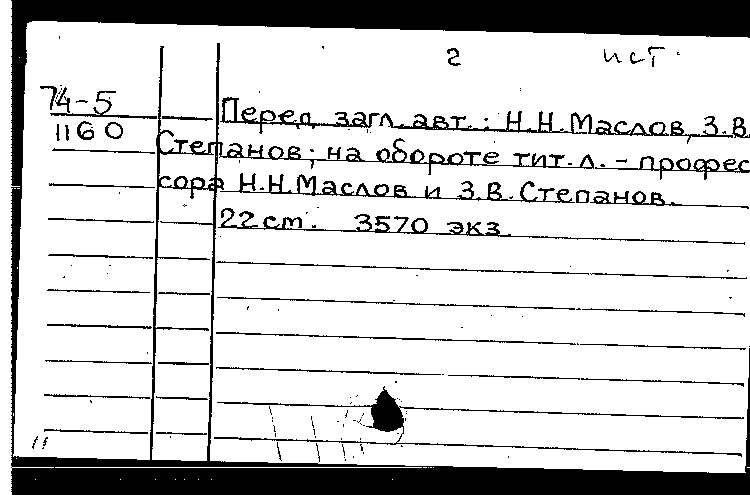 2 ист.
74-5
1160
Перед загл. авт.: Н.Н.Маслов, З.В.
Степанов; на обороте тит. л. - профес
сора Н.Н.Маслов и З.В.Степанов.
22 ст. 3570 экз.